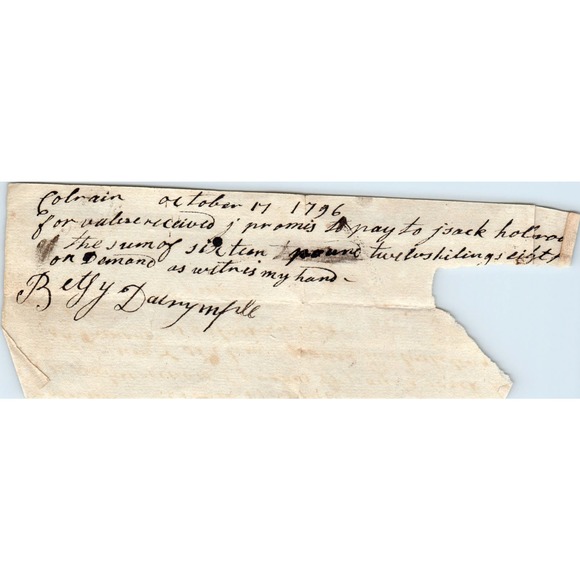 Colrain october 17 1796
for value received j promis to pay to jsack
the sum of sixteen pound twelv shilings eight
on Demand as witnes my hand-
Betsy Dalrymple